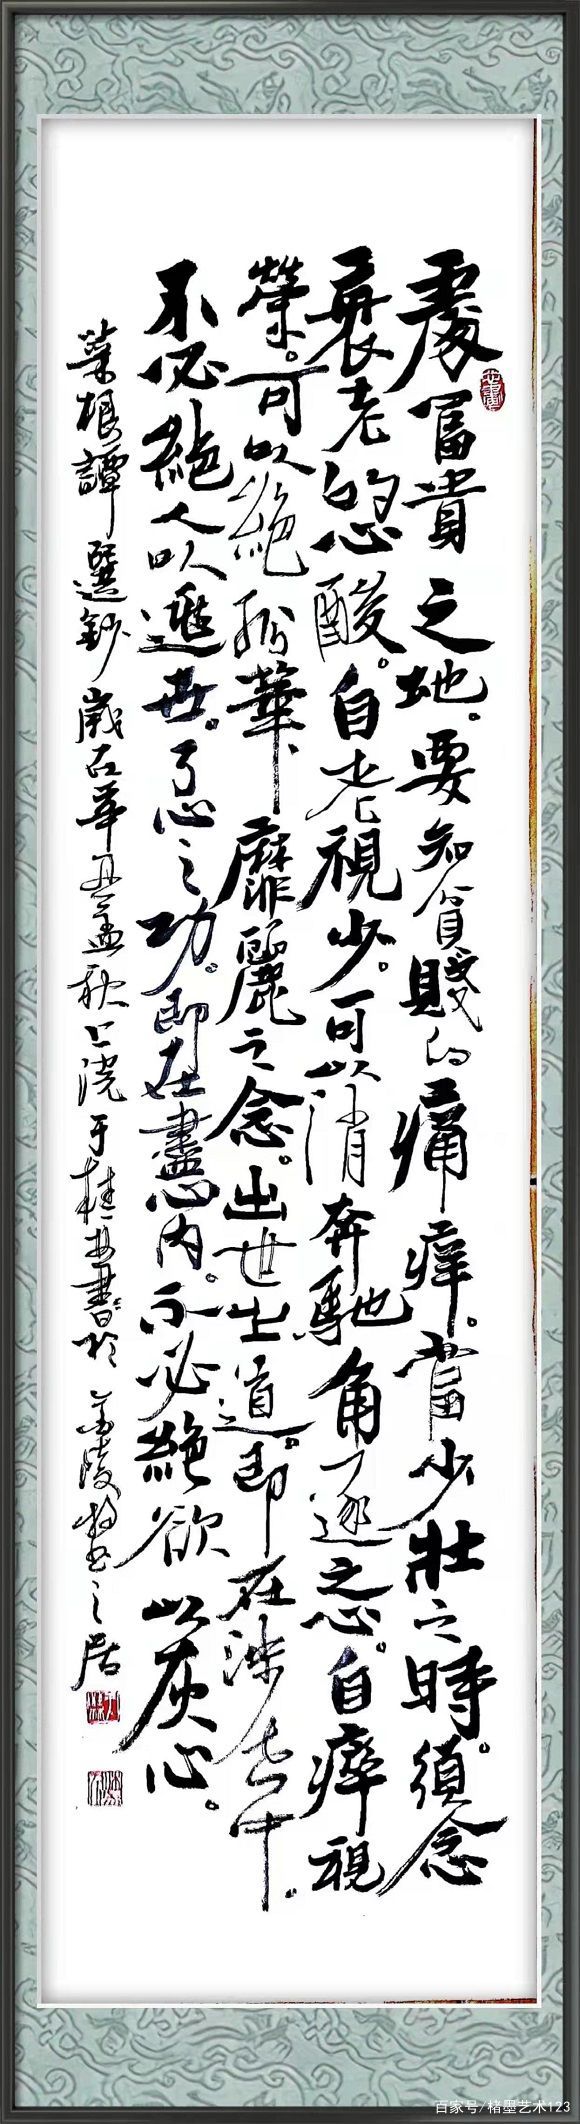 處富貴之地。要知貧賤的痛癢。當少壯之時。須念
衰老的心酸。自老視少。可以消奔馳角逐之心。自瘁視
榮。可以絕紛華、靡麗之念。出世之道。即在涉世中。
不必絕人以逃世。了心之功。即在盡心内。不必絕欲以灰心。
菜根譚選鈔歲在辛丑孟秋上浣于桂林書於金陵之居
百家号/楮墨艺术123